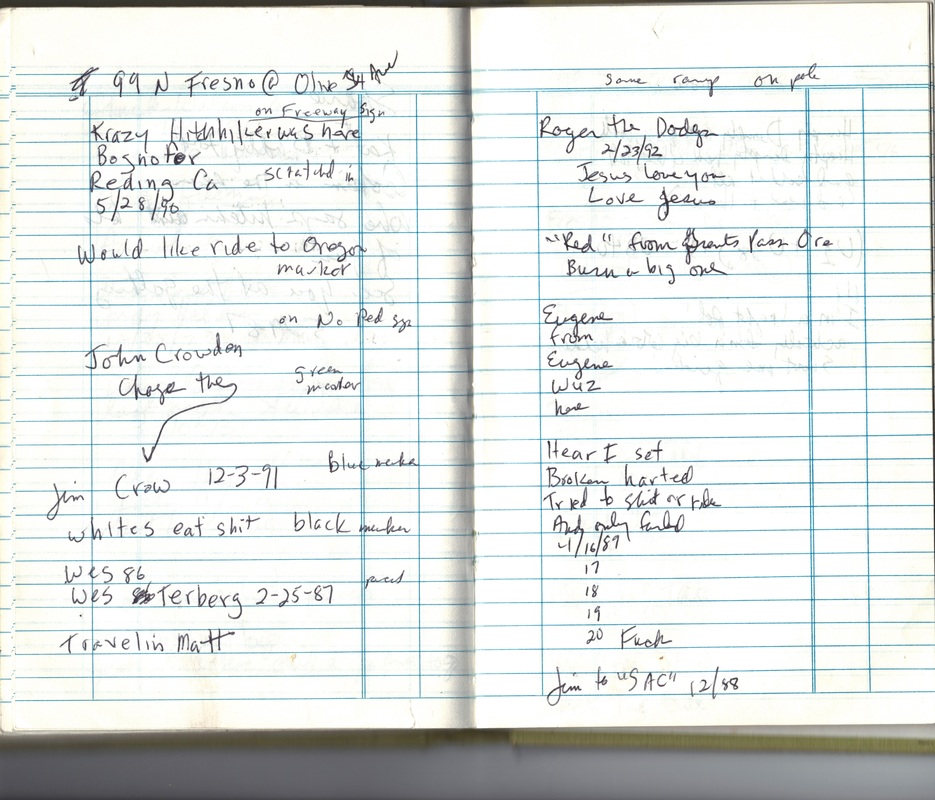 99 N Fresno @ Olive St Ave
on Freeway sign
Krazy Hitchhiker was here
Bognofer
Reding Ca scratched in
5/28/90
Would like ride to Oregon
marker
on No Ped sgn
John Crowden
green
marker
Jim Crow 12-3-91 Blue marker
whites eat shit black marker
Wes 86
Wes Terberg 2-25-87
Travelin Matt
same ramp on pole
Roger the Dodger
2/23/92
Jesus love you
Love Jesus
"Red" from Grants Pass Ore
Burn a big one
Eugene
from
Eugene
wuz
here
Hear I set
Broken harted
Tried to shit or ride
And only farted
4/16/87
17
18
19
20 Fuck
Jim to "SAC" 12/88